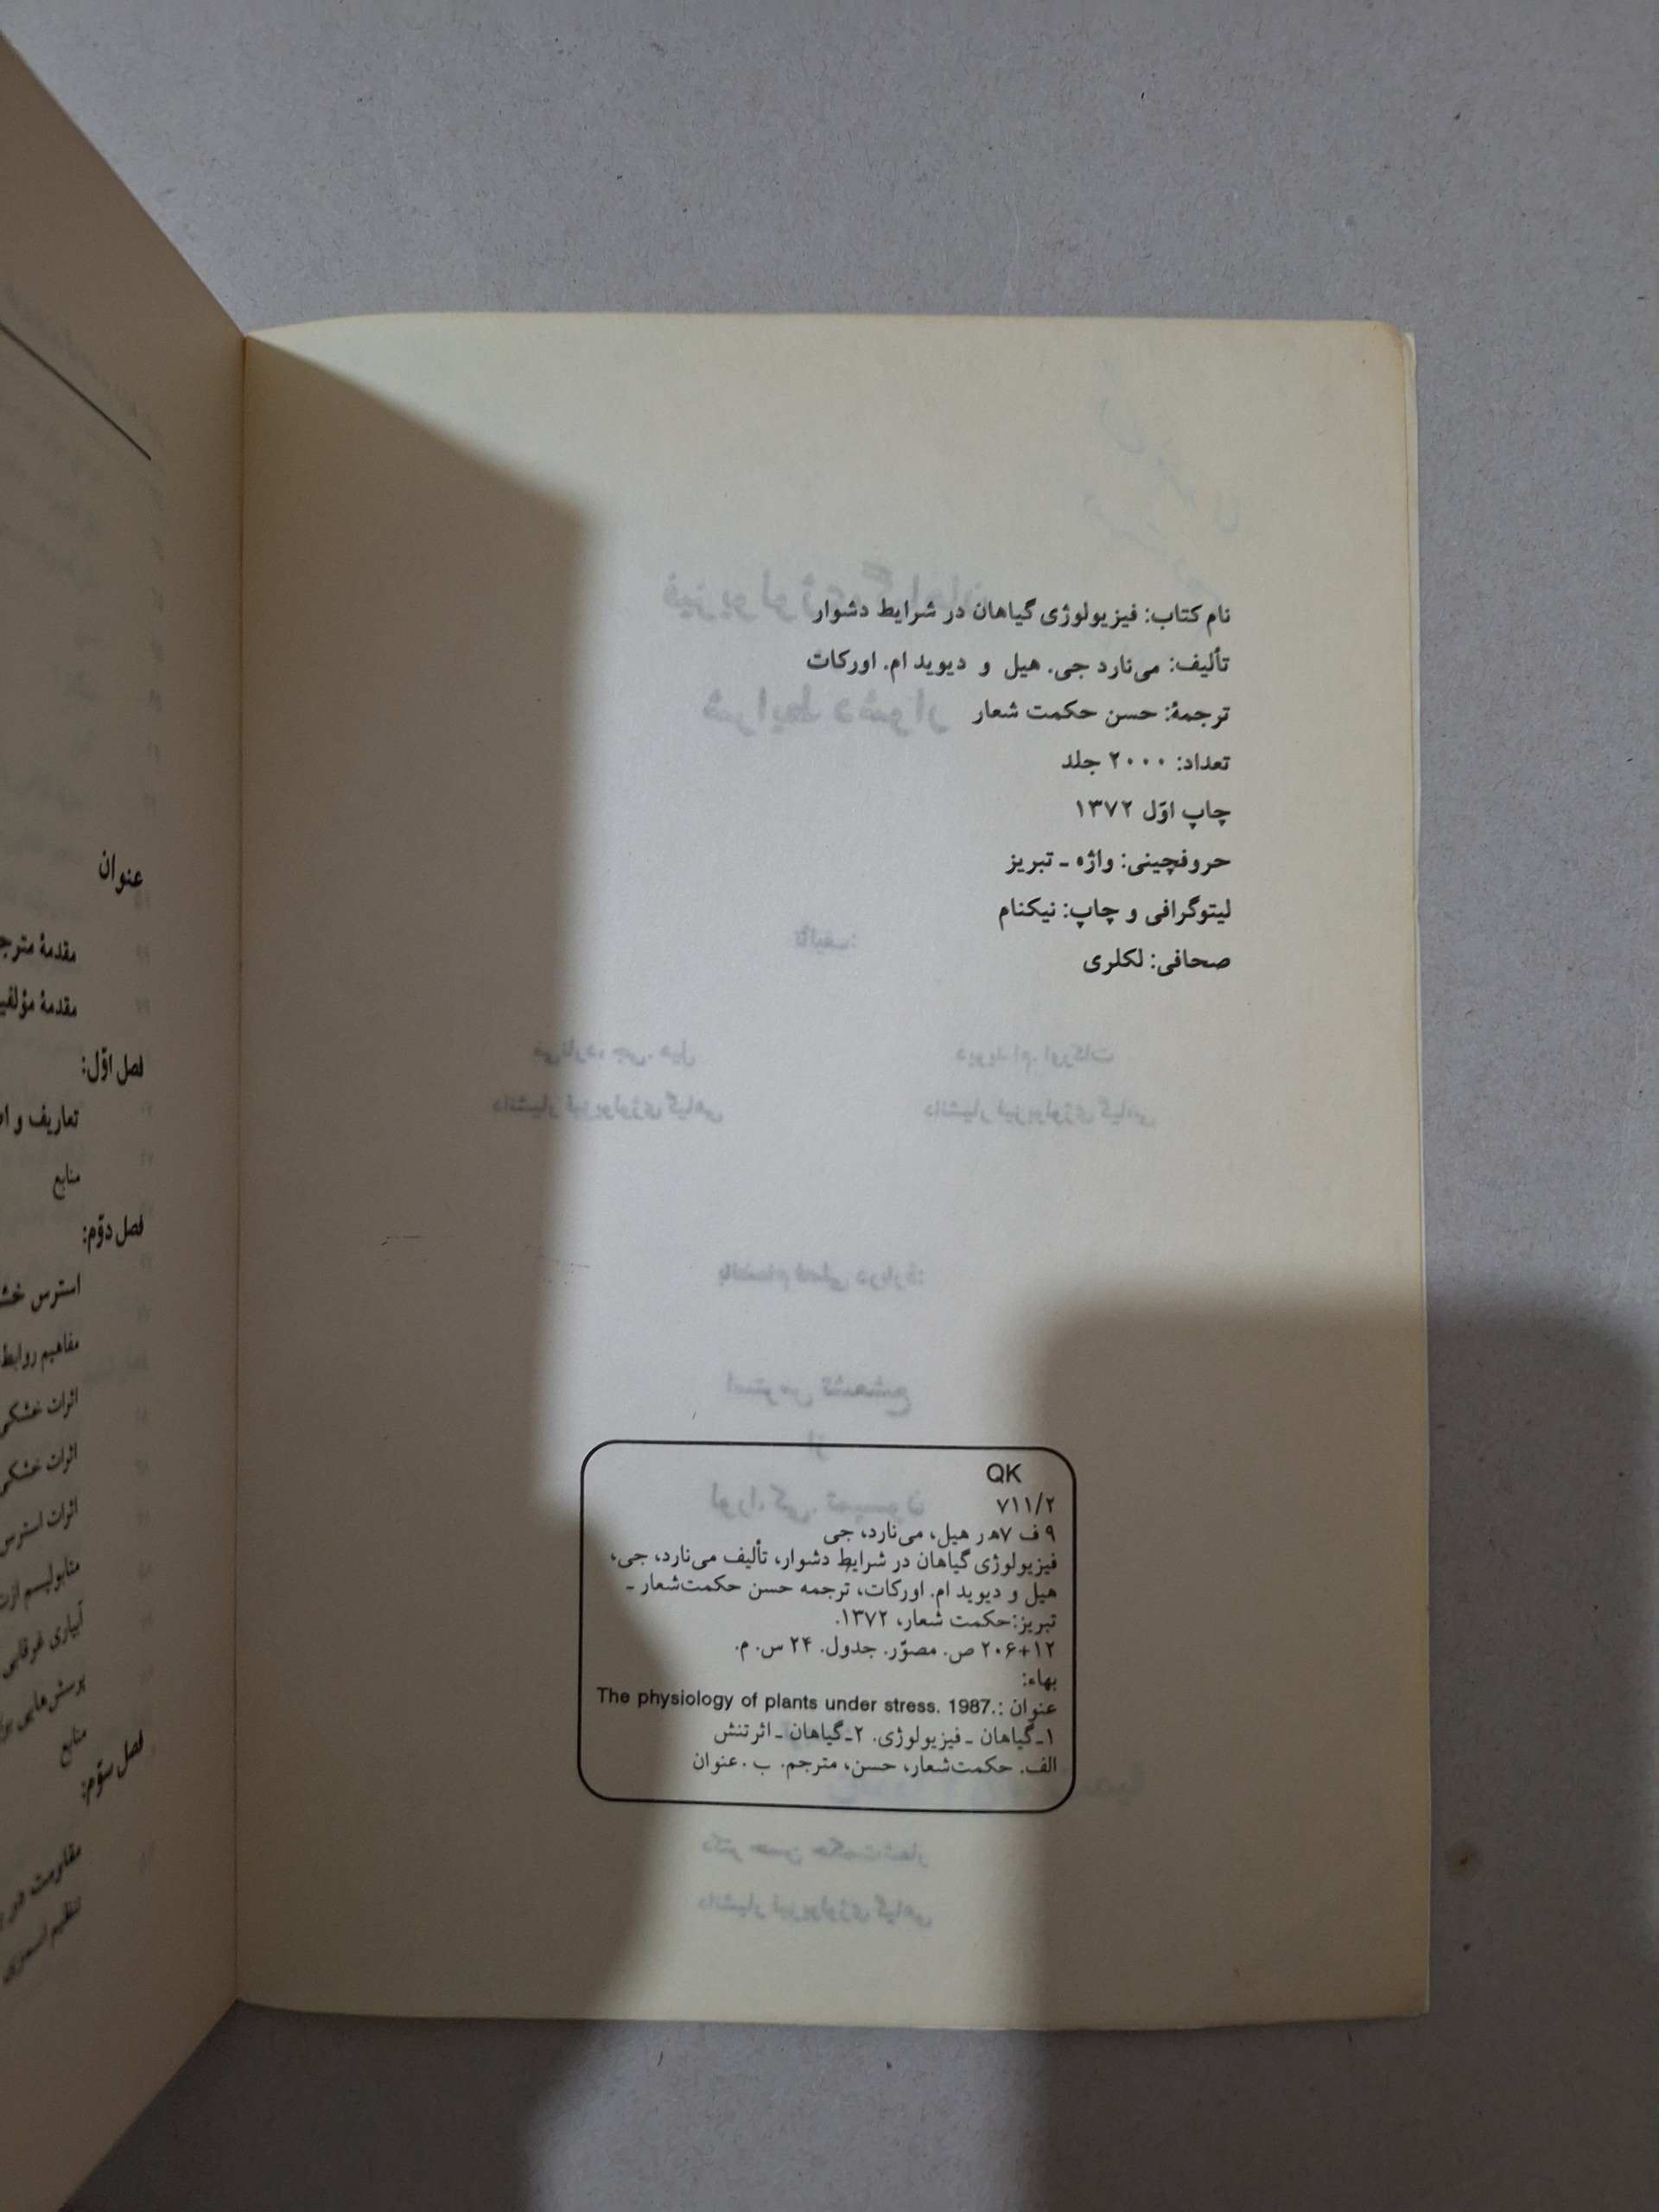 نام کتاب: فیزیولوژی گیاهان در شرایط دشوار
تألیف: می‌نارد جی. هیل و دیوید ام. اورکات
ترجمهٔ: حسن حکمت شعار
تعداد: ۲۰۰۰ جلد
چاپ اوّل ۱۳۷۲
حروفچینی: واژه ـ تبریز
لیتوگرافی و چاپ: نیکنام
صحافی: لکلری
QK
۷۱۱/۲
۹ ف ۷هـ ر هیل، می‌نارد، جی
فیزیولوژی گیاهان در شرایط دشوار، تألیف می‌نارد، جی،
هیل و دیوید ام. اورکات، ترجمه حسن حکمت‌شعار ـ
تبریز: حکمت شعار، ۱۳۷۲.
۱۲+۲۰۶ ص. مصوّر. جدول. ۲۴ س. م.
بهاء:
عنوان :.The physiology of plants under stress. 1987
۱ـ گیاهان ـ فیزیولوژی. ۲ـ گیاهان ـ اثر تنش
الف. حکمت‌شعار، حسن، مترجم. ب . عنوان
عنوان
مقدمهٔ
مقدمهٔ
فصل اوّل:
تعاریف و
منابع
فصل دوّم:
استرس
مفاهیم روابط
اثرات خشکی
اثرات خشکی
اثرات استرس
متابولیسم ازت
آبیاری غرقابی
پرسش‌هایی
منابع
فصل سوّم:
مقاومت در
تنظیم اسمزی